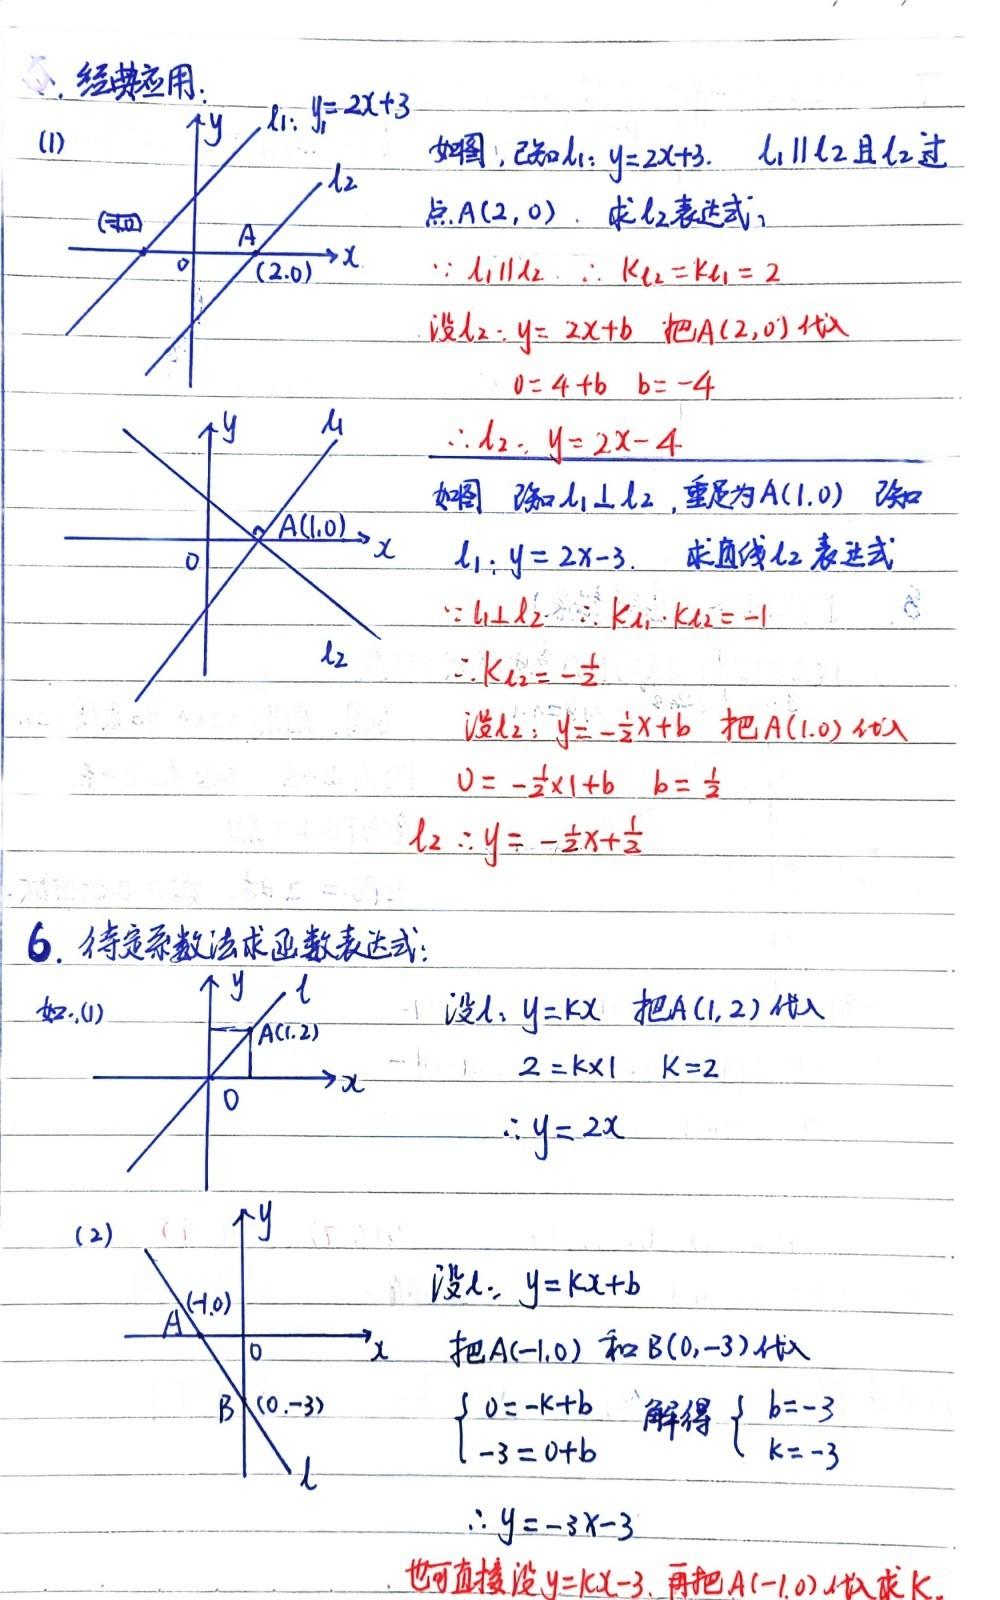 经典应用:
(1)
y
l1: y1=2x+3
l2
A
(2.0)
0
x
如图,已知l1: y=2x+3. l1∥l2且l2过
点A(2,0). 求l2表达式;
∵ l1∥l2 ∴ Kl2=Kl1=2
没l2: y= 2x+b 把A(2,0)代入
0=4+b b=-4
∴l2: y=2x-4
y
l1
A(1.0)
0
x
l2
如图 已知l1⊥l2,垂足为A(1.0) 已知
l1: y=2x-3. 求直线l2表达式
∵l1⊥l2 ∴ Kl1·Kl2=-1
∴Kl2=-1/2
没l2: y=-1/2x+b 把A(1.0)代入
0=-1/2×1+b b=1/2
l2∴y=-1/2x+1/2
6. 待定系数法求函数表达式:
如:(1)
y
l
A(1.2)
0
x
没l: y=kx 把A(1,2)代入
2=k×1 K=2
∴y=2x
(2)
y
A
(-1.0)
0
x
B
(0.-3)
l
没l: y=kx+b
把A(-1.0) 和B(0,-3)代入
{ 0=-k+b 解得 { b=-3
-3=0+b k=-3
∴y=-3x-3
也可直接没y=kx-3. 再把A(-1.0)代入求K.